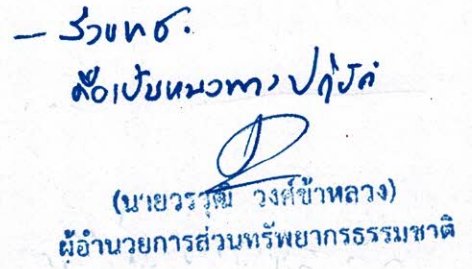 - ส่วนทธ.
ถือเป็นแนวทางปฏิบัติ
(นายวรวุฒิ วงศ์ข้าหลวง)
ผู้อำนวยการส่วนทรัพยากรธรรมชาติ